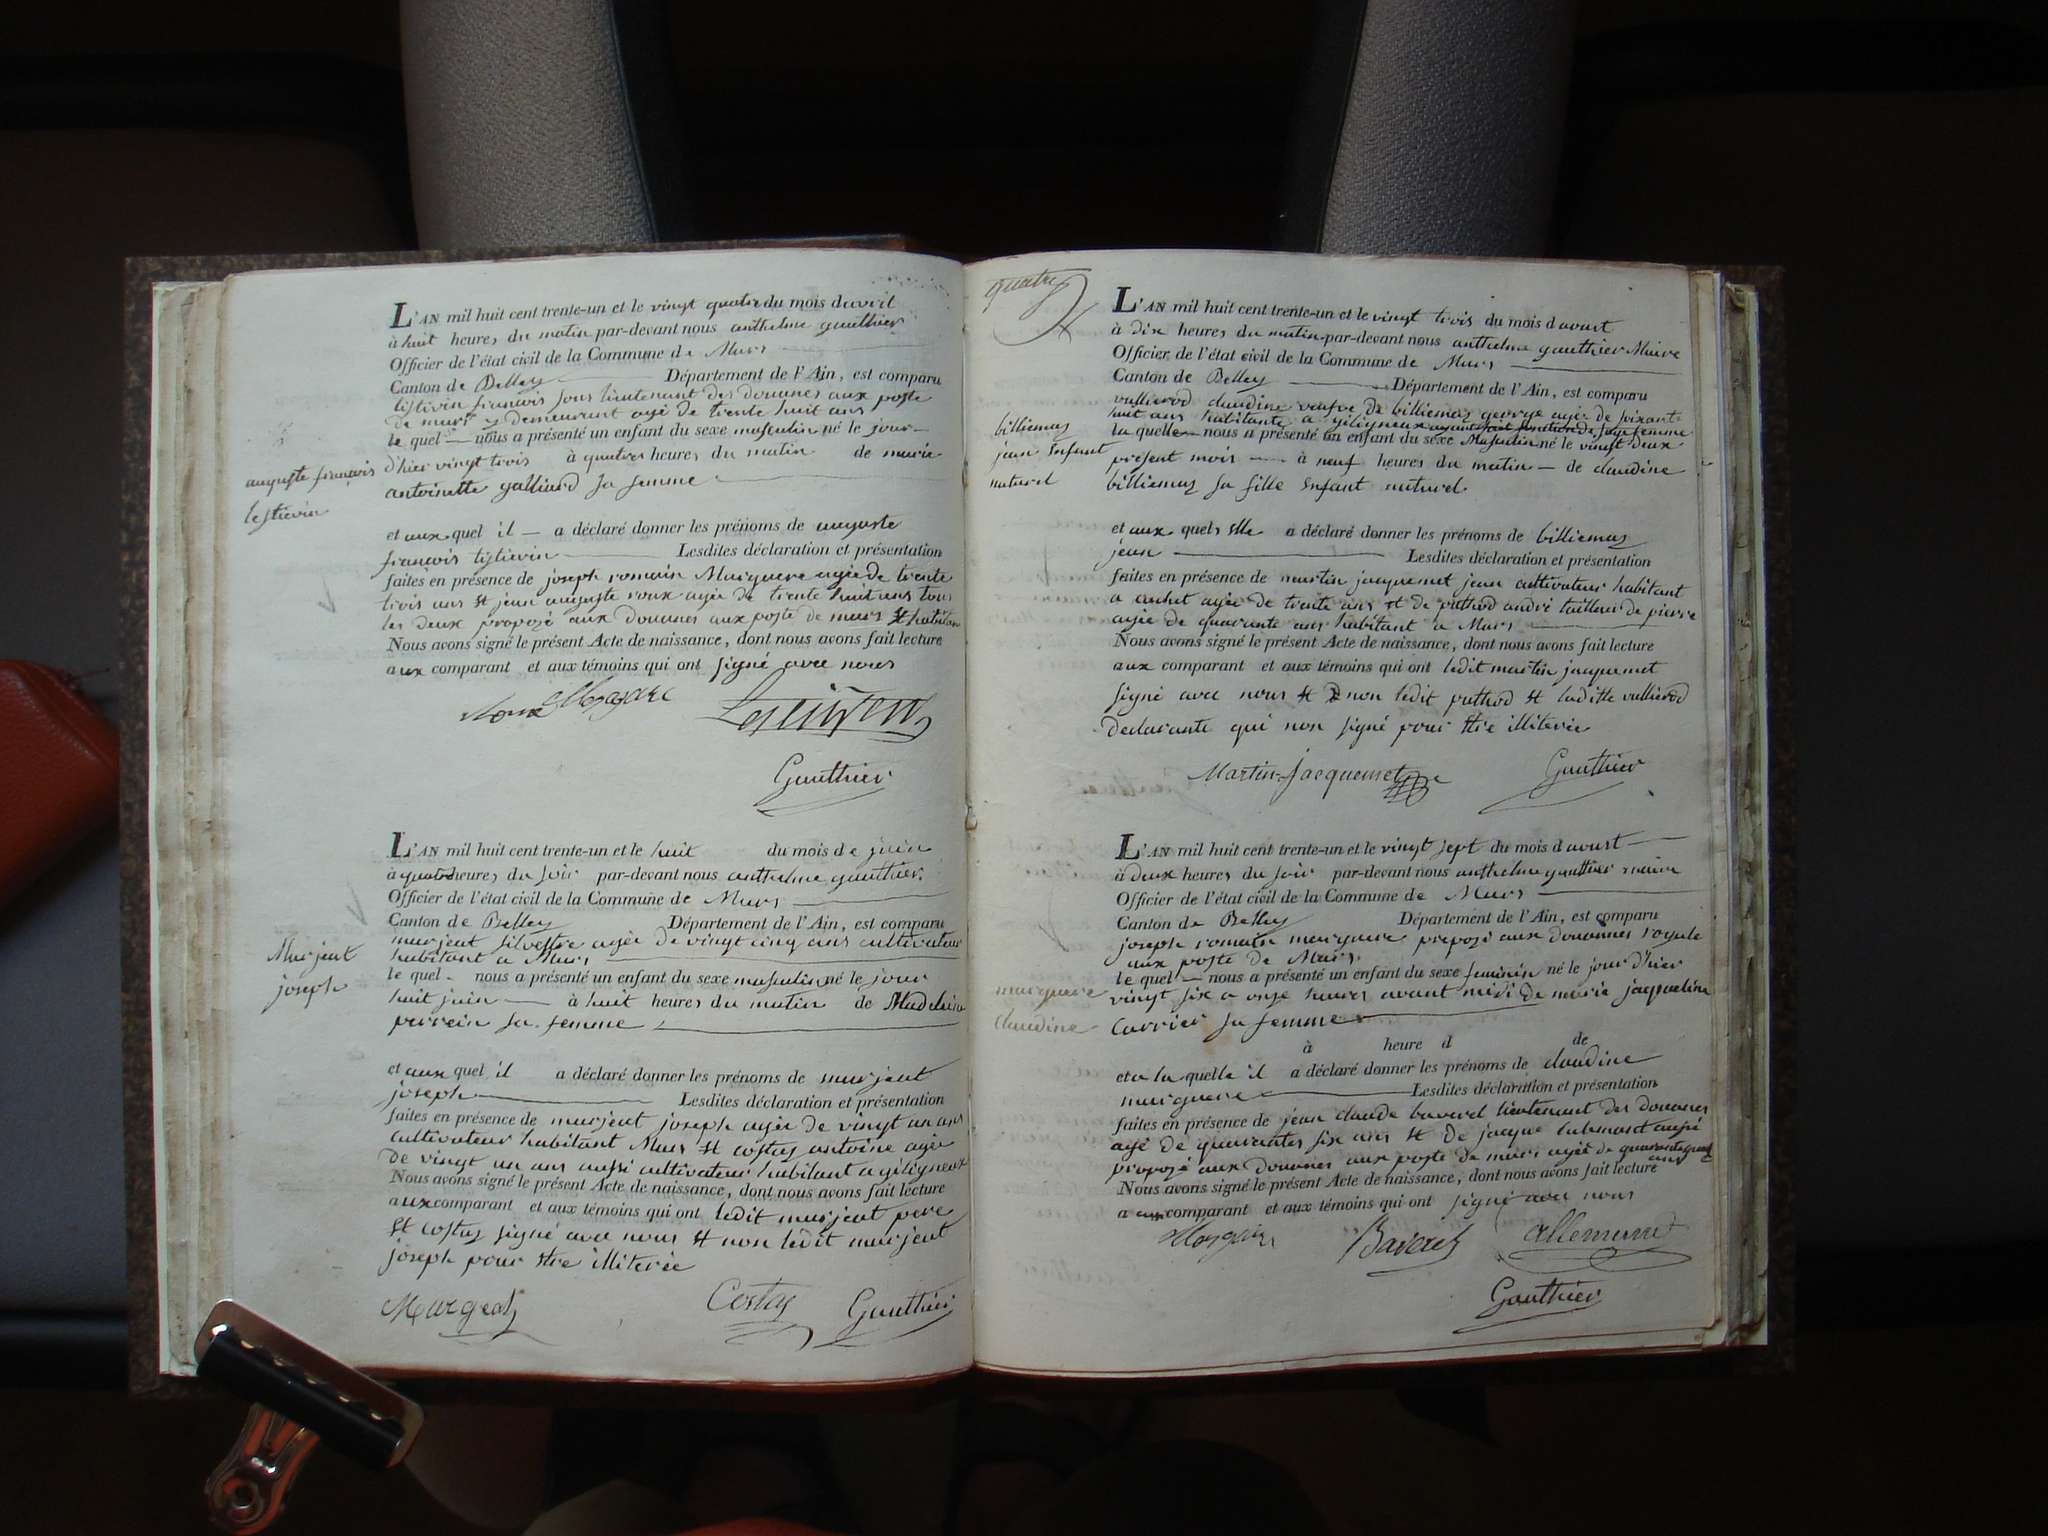 L'AN mil huit cent trente-un et le vingt quatre du mois davril
à huit heures du matin par-devant nous anthelme gauthier
Officier de l'état civil de la Commune de Murs
Canton de Belley Département de l'Ain, est comparu
françois sous lieutenant des douanes aux poste
de murs y demeurant agé de trente huit ans
le quel nous a présenté un enfant du sexe masculin né le jour
d'hier vingt trois à quatres heures du matin de marie
antoinette galliard sa femme
auguste françois
lestievin
et aux quel il a déclaré donner les prénoms de auguste
françois Lesdites déclaration et présentation
faites en présence de joseph romain Marguere agée de trente
trois ans et jean auguste roux agée de trente huit ans tous
les deux proposé aux douanes aux poste de murs et habitan
Nous avons signé le présent Acte de naissance, dont nous avons fait lecture
aux comparant et aux témoins qui ont signé avec nous
Roux Lestiven
Gauthier
L'AN mil huit cent trente-un et le huit du mois de juin
à quatre heures du soir par-devant nous anthelme gauthier
Officier de l'état civil de la Commune de Murs
Canton de Belley Département de l'Ain, est comparu
murjeat silvestre agée de vingt cinq ans cultivateur
habitant a Murs
Murjeat
joseph
le quel nous a présenté un enfant du sexe masculin né le jour
huit juin à huit heures du matin de Madelaine
perrein sa femme
et aux quel il a déclaré donner les prénoms de murjeat
joseph Lesdites déclaration et présentation
faites en présence de murjeat joseph agée de vingt un ans
cultivateur habitant Murs et costaz antoine agée
de vingt un ans aussi cultivateur habitant a géligneux
Nous avons signé le présent Acte de naissance, dont nous avons fait lecture
aux comparant et aux témoins qui ont ledit murjeat pere
et costaz signé avec nous et non ledit murjeat
joseph pour etre illiterée
Murgeat Costaz Gauthier
quatre
L'AN mil huit cent trente-un et le vingt trois du mois d'avust
à dix heures du matin par-devant nous anthelme gauthier Maire
Officier de l'état civil de la Commune de Murs
Canton de Belley Département de l'Ain, est comparu
vullierod claudine veufve de billiemaz george agée de soixante
huit ans habitante a géligneux
la quelle nous a présenté un enfant du sexe Masculin né le vingt deux
présent mois à neuf heures du matin de claudine
billiemaz sa fille enfant naturel
billiemaz
jean enfant
naturel
et aux quels elle a déclaré donner les prénoms de billiemaz
jean Lesdites déclaration et présentation
faites en présence de martin jacquemet jean cultivateur habitant
a cuchet agée de trente ans et de puthod andré tailleur de pierre
agée de quarante ans habitant a Murs
Nous avons signé le présent Acte de naissance, dont nous avons fait lecture
aux comparant et aux témoins qui ont ledit martin jacquemet
signé avec nous et non ledit puthod et laditte vullierod
declarante qui non signé pour etre illiterée
Martin-Jacquemet Gauthier
L'AN mil huit cent trente-un et le vingt sept du mois d'avust
à deux heures du soir par-devant nous anthelme gauthier maire
Officier de l'état civil de la Commune de Murs
Canton de Belley Département de l'Ain, est comparu
joseph romain marguere proposé aux douannes royale
aux poste de Murs
le quel nous a présenté un enfant du sexe feminin né le jour d'hier
vingt six a onze heures avant midi de marie jacqueline
Carrier sa femme
marguere
claudine
à heure d de
et a la quelle il a déclaré donner les prénoms de claudine
marguere Lesdites déclaration et présentation
faites en présence de jean claude baverel lieutenant des douanes
agé de quarantes six ans et de jacque
proposé aux douanes aux poste de murs agée de quarante
ans
Nous avons signé le présent Acte de naissance, dont nous avons fait lecture
a comparant et aux témoins qui ont signé avec nous
Baverel allemand
Gauthier